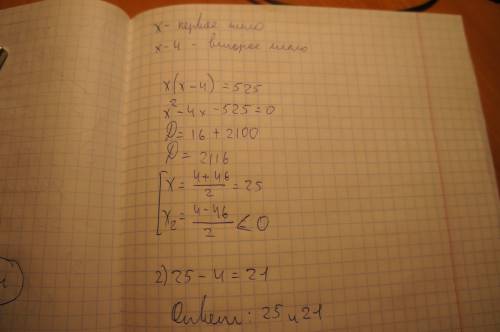 x - первое число
x-4 - второе число
x(x-4)=525
x²-4x-525=0
D=16+2100
D=2116
[x=\frac{4+46}{2}=25
x₂=\frac{4-46}{2}<0
2) 25-4=21
Ответ: 25 и 21